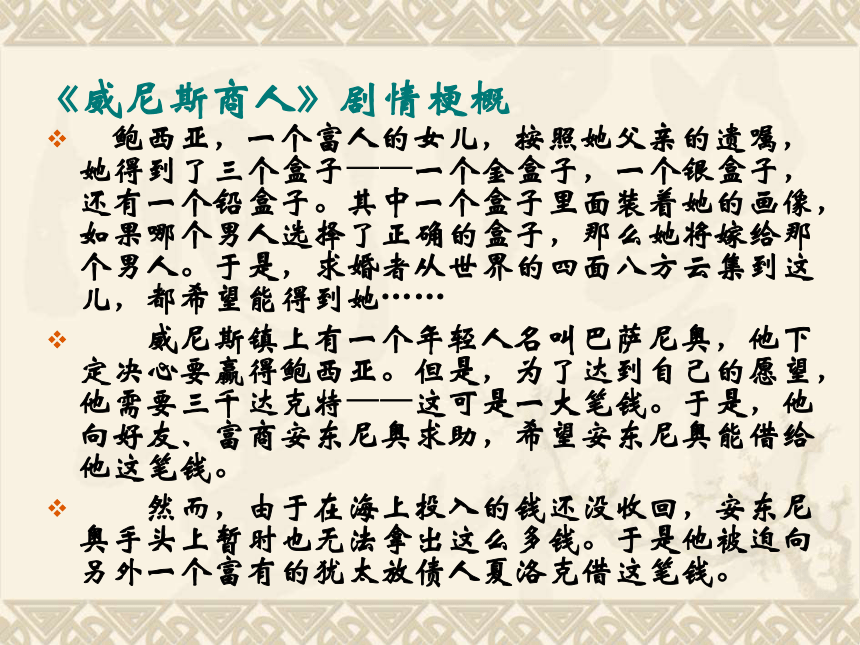 《威尼斯商人》剧情梗概
鲍西亚，一个富人的女儿，按照她父亲的遗嘱，
她得到了三个盒子——一个金盒子，一个银盒子，
还有一个铅盒子。其中一个盒子里面装着她的画像，
如果哪个男人选择了正确的盒子，那么她将嫁给那
个男人。于是，求婚者从世界的四面八方云集到这
儿，都希望能得到她……
威尼斯镇上有一个年轻人名叫巴萨尼奥，他下
定决心要赢得鲍西亚。但是，为了达到自己的愿望，
他需要三千达克特——这可是一大笔钱。于是，他
向好友、富商安东尼奥求助，希望安东尼奥能借给
他这笔钱。
然而，由于在海上投入的钱还没收回，安东尼
奥手头上暂时也无法拿出这么多钱。于是他被迫向
另外一个富有的犹太放债人夏洛克借这笔钱。